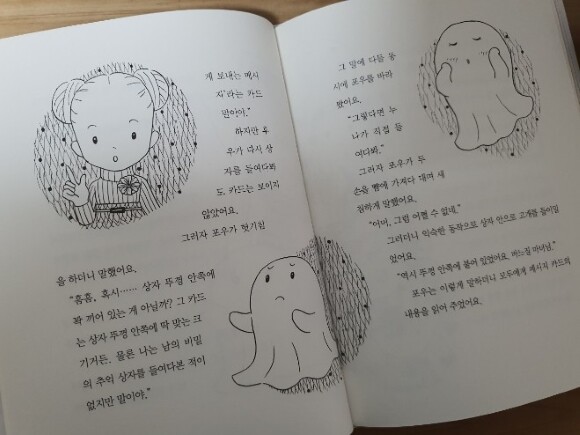 게 보내는 메시
지'라는 카드
말이야."
하지만 루
우가 다시 상
자를 들여다봐
도 카드는 보이지
않았어요.
그러자 포우가 헛기침
을 하더니 말했어요.
"흠흠, 혹시…… 상자 뚜껑 안쪽에
꽉 끼어 있는 게 아닐까? 그 카드
는 상자 뚜껑 안쪽에 딱 맞는 크
기거든. 물론 나는 남의 비밀
의 추억 상자를 들여다본 적이
없지만 말이야."
그 말에 다들 동
시에 포우를 바라
봤어요.
"그렇다면 누
나가 직접 들
여다봐."
그러자 포우가 두
손을 뺨에 가져다 대며 새
침하게 말했어요.
"어머, 그럼 어쩔 수 없네."
그러더니 익숙한 동작으로 상자 안으로 고개를 들이밀
었어요.
"역시 뚜껑 안쪽에 붙어 있었어요. 버느질 마녀님."
포우는 이렇게 말하더니 모두에게 메시지 카드의
내용을 읽어 주었어요.